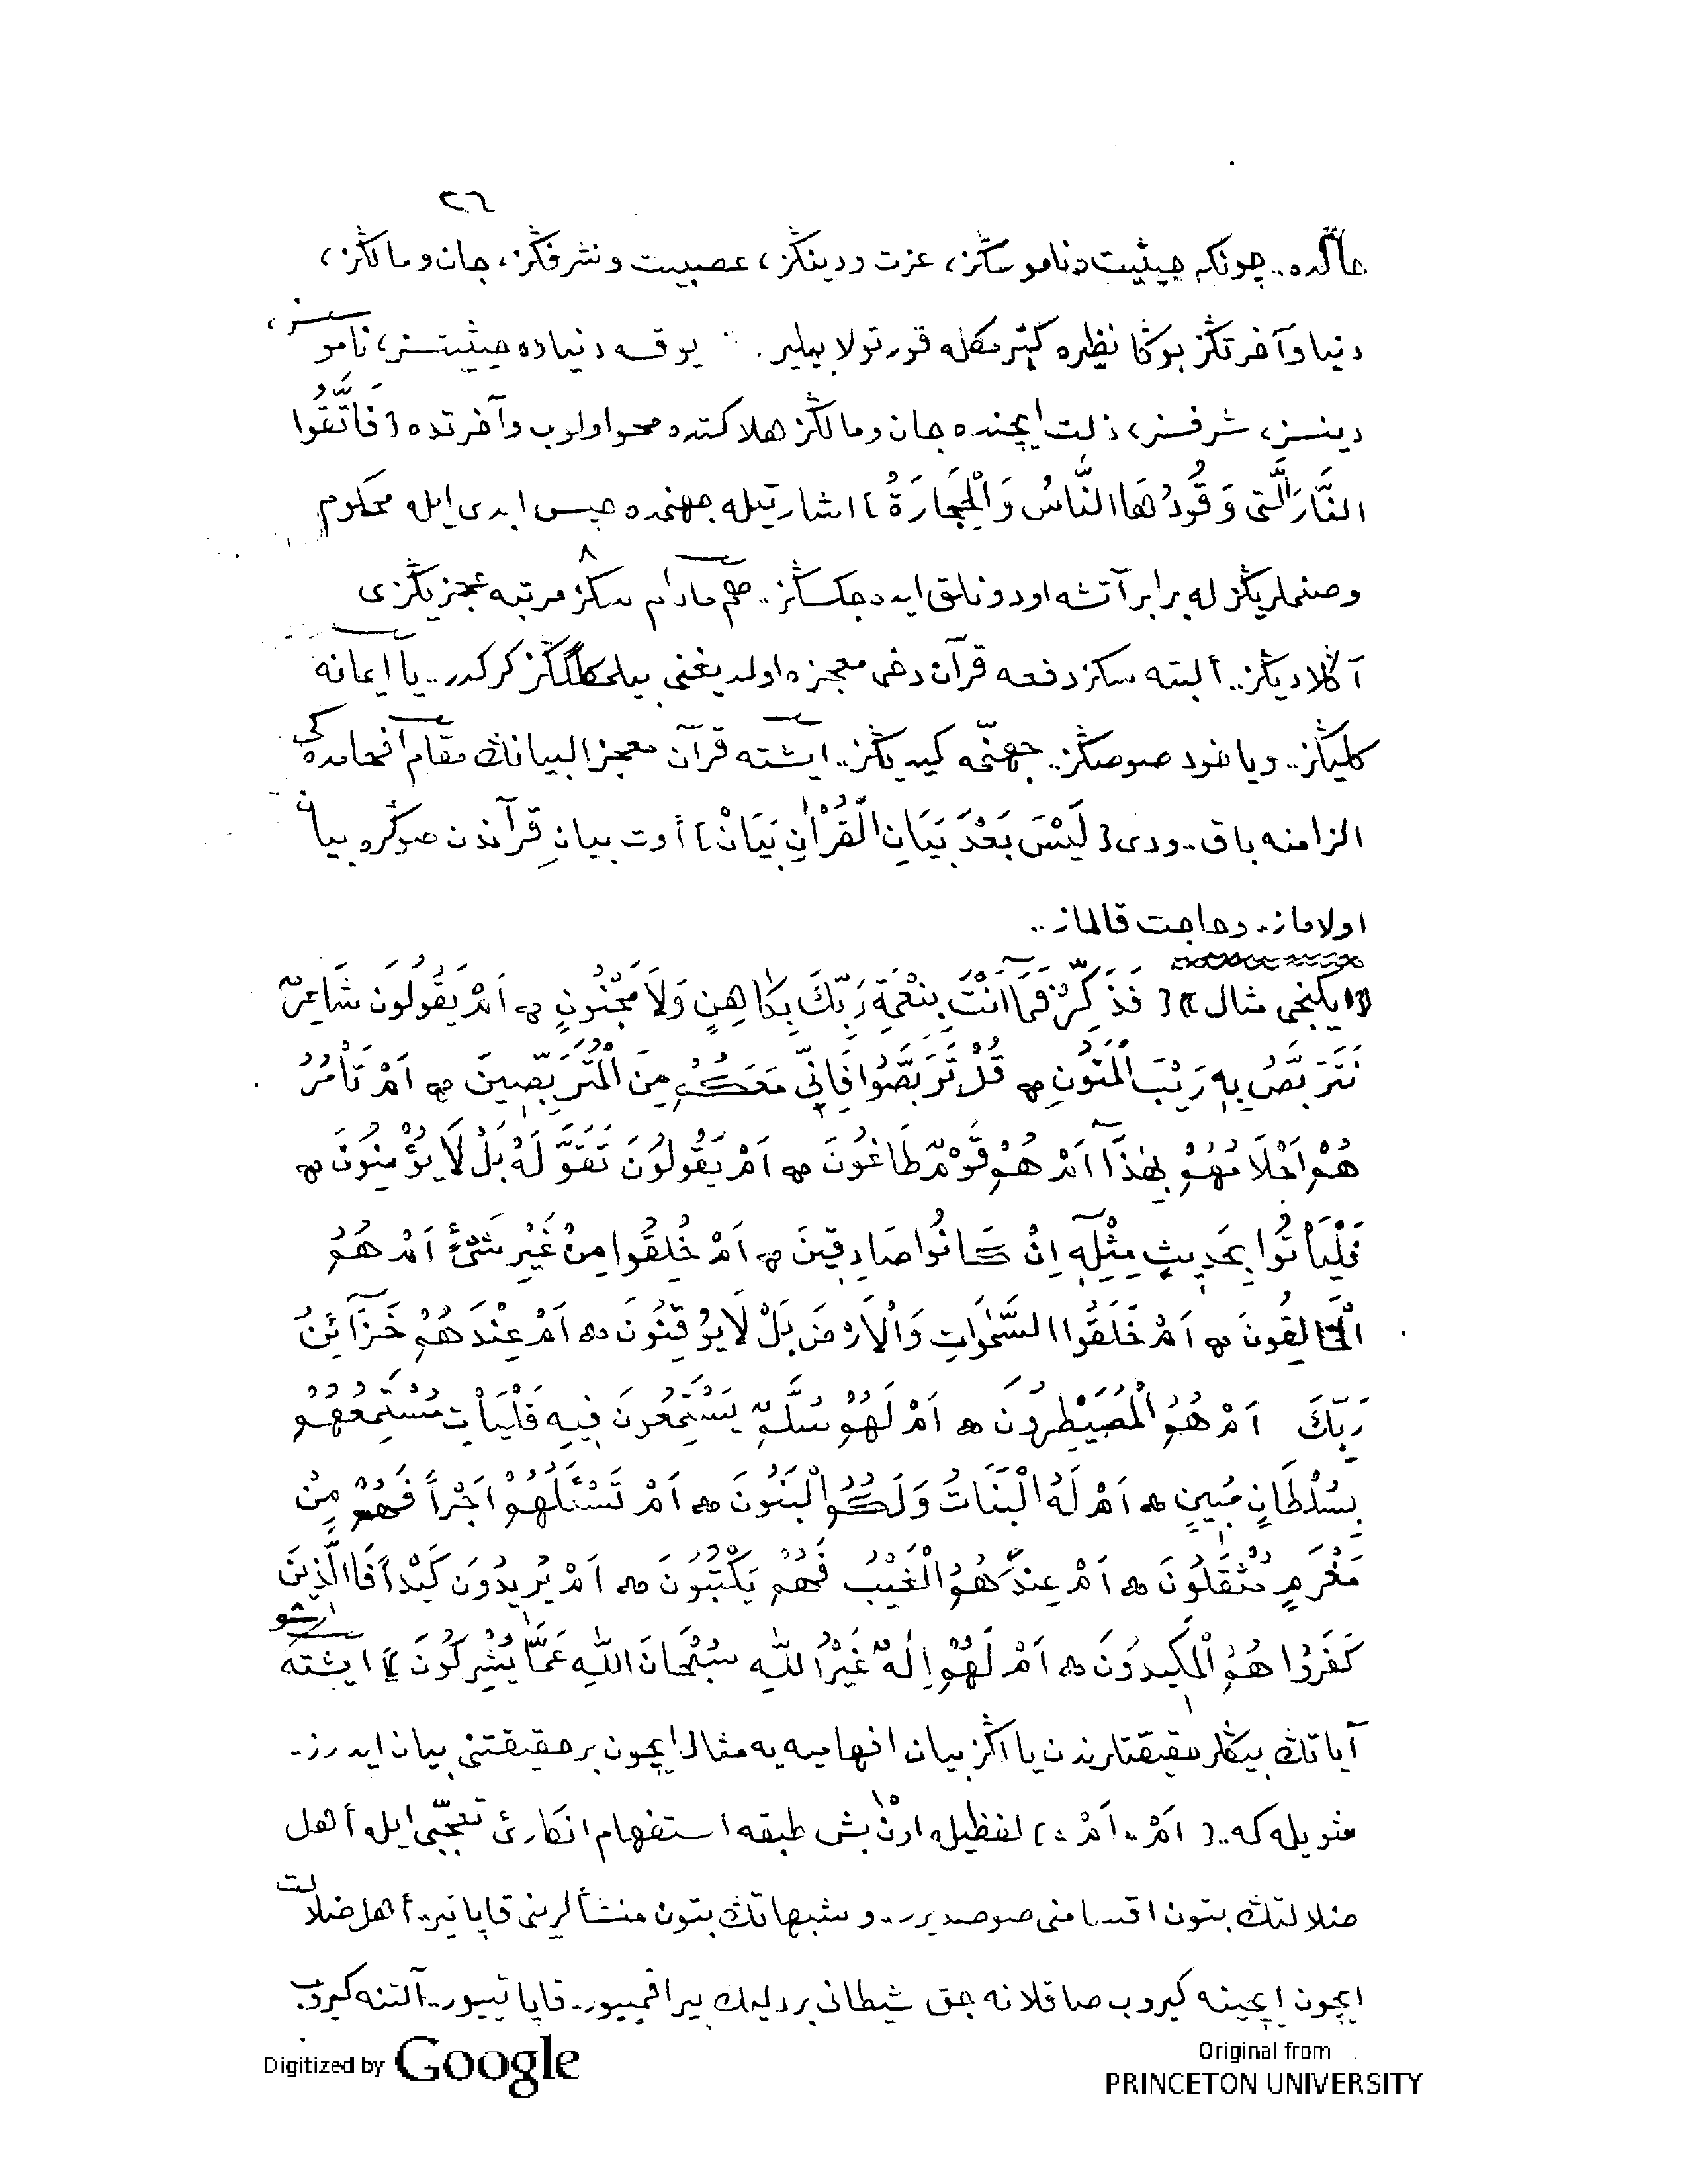 ٢٦
حالده.. چونكه حيثيت و ناموسڭز، عزت و دينڭز، عصبيت و شرفڭز، جان و مالڭز،
دنيا و آخرتڭز بوڭا نظيره كتيرمكله قورتولا بيلير. يوقسه دنياده حيثيتسز، ناموسسز،
دينسز، شرفسز، ذلت ايچنده جان و مالڭز هلاكتده محو اولوب و آخرتده [فَاتَّقُوا
النَّارَ الَّتِى وَقُودُهَا النَّاسُ وَالْحِجَارَةُ] اشارتيله جهنمده حبس ابدى ايله محكوم
وصنملريڭز له برابر آتشه اودونلق ايده جكسڭز.. هم مادام سكز ٨ مرتبه عجزيڭزى
آڭلاديڭز.. ألبته سكز دفعه قرآن دخى معجزه اولديغنى بيلمكلگڭز كركدر.. يا ايمانه
كليڭز.. وياخود صوصڭز.. جهنّمه كيديڭز.. ايشته قرآن معجز البيانڭ مقام افحامده كى
الزامنه باق.. ودى [لَيْسَ بَعْدَ بَيَانِ الْقُرْاٰنِ بَيَانْ] أوت بيانِ قرآندن صوڭره بيان
اولاماز.. وحاجت قالماز..
((ايكنجى مثال)) [فَذَكِّرْ فَمَا اَنْتَ بِنِعْمَةِ رَبِّكَ بِكَاهِنٍ وَلَا مَجْنُونٍ ۞ اَمْ يَقُولُونَ شَاعِرٌ
نَتَرَبَّصُ بِهِ رَيْبَ الْمَنُونِ ۞ قُلْ تَرَبَّصُوا فَاِنِّى مَعَكُمْ مِنَ الْمُتَرَبِّصِينَ ۞ اَمْ تَاْمُرُ
هُمْ اَحْلَامُهُمْ بِهٰذَآ اَمْ هُمْ قَوْمٌ طَاغُونَ ۞ اَمْ يَقُولُونَ تَقَوَّلَهُ بَلْ لَا يُؤْمِنُونَ ۞
فَلْيَاْتُوا بِحَدِيثٍ مِثْلِهِ اِنْ كَانُوا صَادِقِينَ ۞ اَمْ خُلِقُوا مِنْ غَيْرِ شَىْءٍ اَمْ هُمُ
الْخَالِقُونَ ۞ اَمْ خَلَقُوا السَّمٰوَاتِ وَالْاَرْضَ بَلْ لَا يُوقِنُونَ ۞ اَمْ عِنْدَهُمْ خَزَآئِنُ
رَبِّكَ اَمْ هُمُ الْمُصَيْطِرُونَ ۞ اَمْ لَهُمْ سُلَّمٌ يَسْتَمِعُونَ فِيهِ فَلْيَاْتِ مُسْتَمِعُهُمْ
بِسُلْطَانٍ مُبِينٍ ۞ اَمْ لَهُ الْبَنَاتُ وَلَكُمُ الْبَنُونَ ۞ اَمْ تَسْئَلُهُمْ اَجْراً فَهُمْ مِنْ
مَغْرَمٍ مُثْقَلُونَ ۞ اَمْ عِنْدَهُمُ الْغَيْبُ فَهُمْ يَكْتُبُونَ ۞ اَمْ يُرِيدُونَ كَيْداً فَالَّذِينَ
كَفَرُوا هُمُ الْمَكِيدُونَ ۞ اَمْ لَهُمْ اِلٰهٌ غَيْرُ اللّٰهِ سُبْحَانَ اللّٰهِ عَمَّا يُشْرِكُونَ] ايشته شو
آياتڭ بيڭلر حقيقتلرندن يالڭز بيان افهاميه يه مثال ايچون بر حقيقتنى بيان ايدرز.
شويله كه.. [اَمْ.. اَمْ..] لفظيله اون بش طبقه استفهام انكارئ تعجّبى ايله أهل
ضلالتڭ بتون اقسامنى صوصديرر.. و شبهاتڭ بتون منشألرينى قاپاتير.. أهل ضلالت
ايچون ايچينه كيروب صاقلانه جق شيطانى بر دليك بيراقميور.. قاپاتيور.. آلتنه كيروب
Digitized by Google
Original from
PRINCETON UNIVERSITY